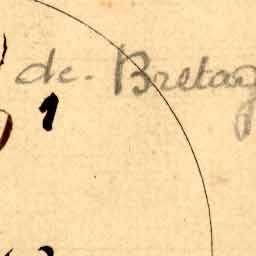 de. Bretag
1